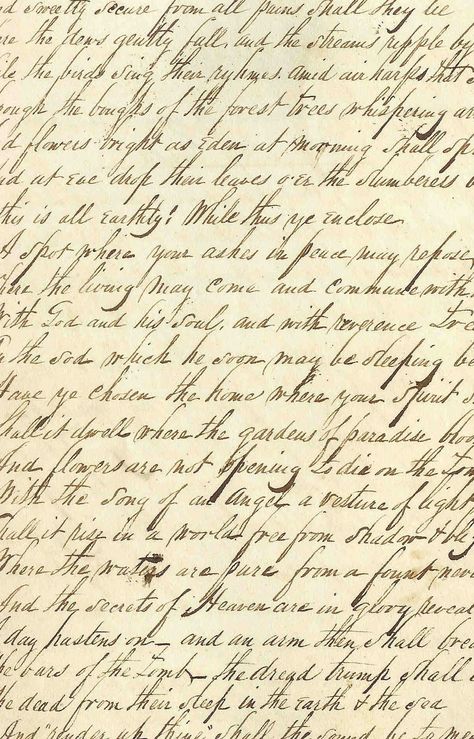 d Sweetly Secure from all pains shall they lie
re the dews gently fall, and the streams ripple by
ile the birds sing their rhymes. amid air harps that
rough the boughs of the forest trees whispering are
d flowers bright as Eden at morning shall sp
nd at Eve drop their leaves o'er the slumberers
this is all Earthly! While thus ye enclose
A Spot where your ashes in peace may repose,
here the living may come and commune with
With God and his Soul, and with reverence
the sod which he soon may be sleeping be
Have ye chosen the home where your Spirit s
Shall it dwell where the gardens of paradise bloo
And flowers are not opening to die on the To
With the Song of an Angel a vesture of light
hall it rise in a world free from Shadow &
Where the waters are pure from a fount neve
And the Secrets of Heaven are in glory reveal
day hastens on — and an arm then shall brea
he bars of the Tomb — the dread trump Shall
he dead from their Sleep in the Earth & the Sea
And "render up thine" Shall the Sound be to m